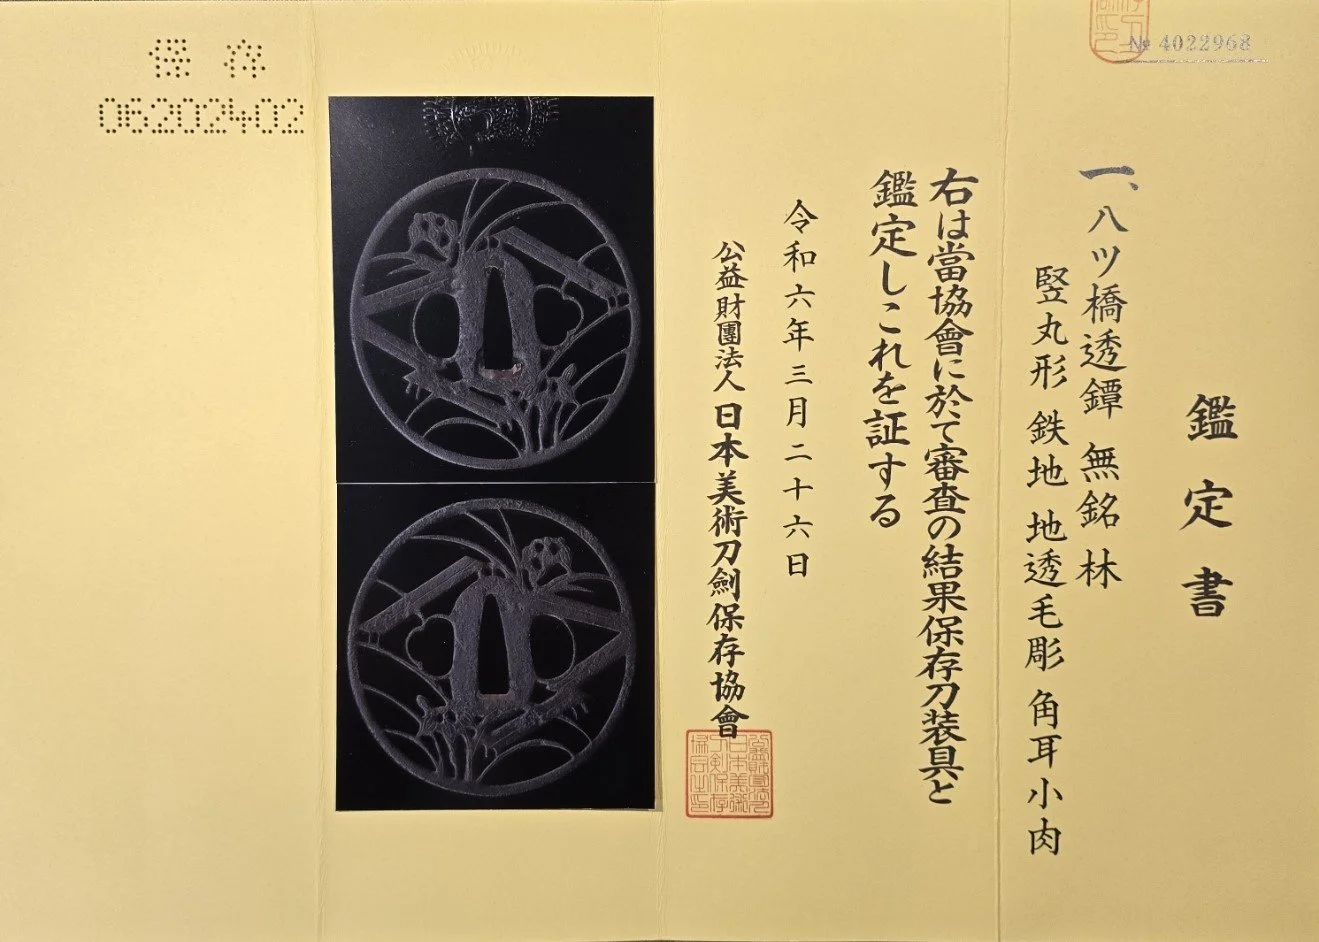 № 4022968
鑑定書
一、八ツ橋透鐔 無銘 林
竪丸形 鉄地 地透毛彫 角耳小肉
右は當協會に於て審査の結果保存刀装具と
鑑定しこれを証する
令和六年三月二十六日
公益財團法人 日本美術刀劍保存協會
保存
06202402